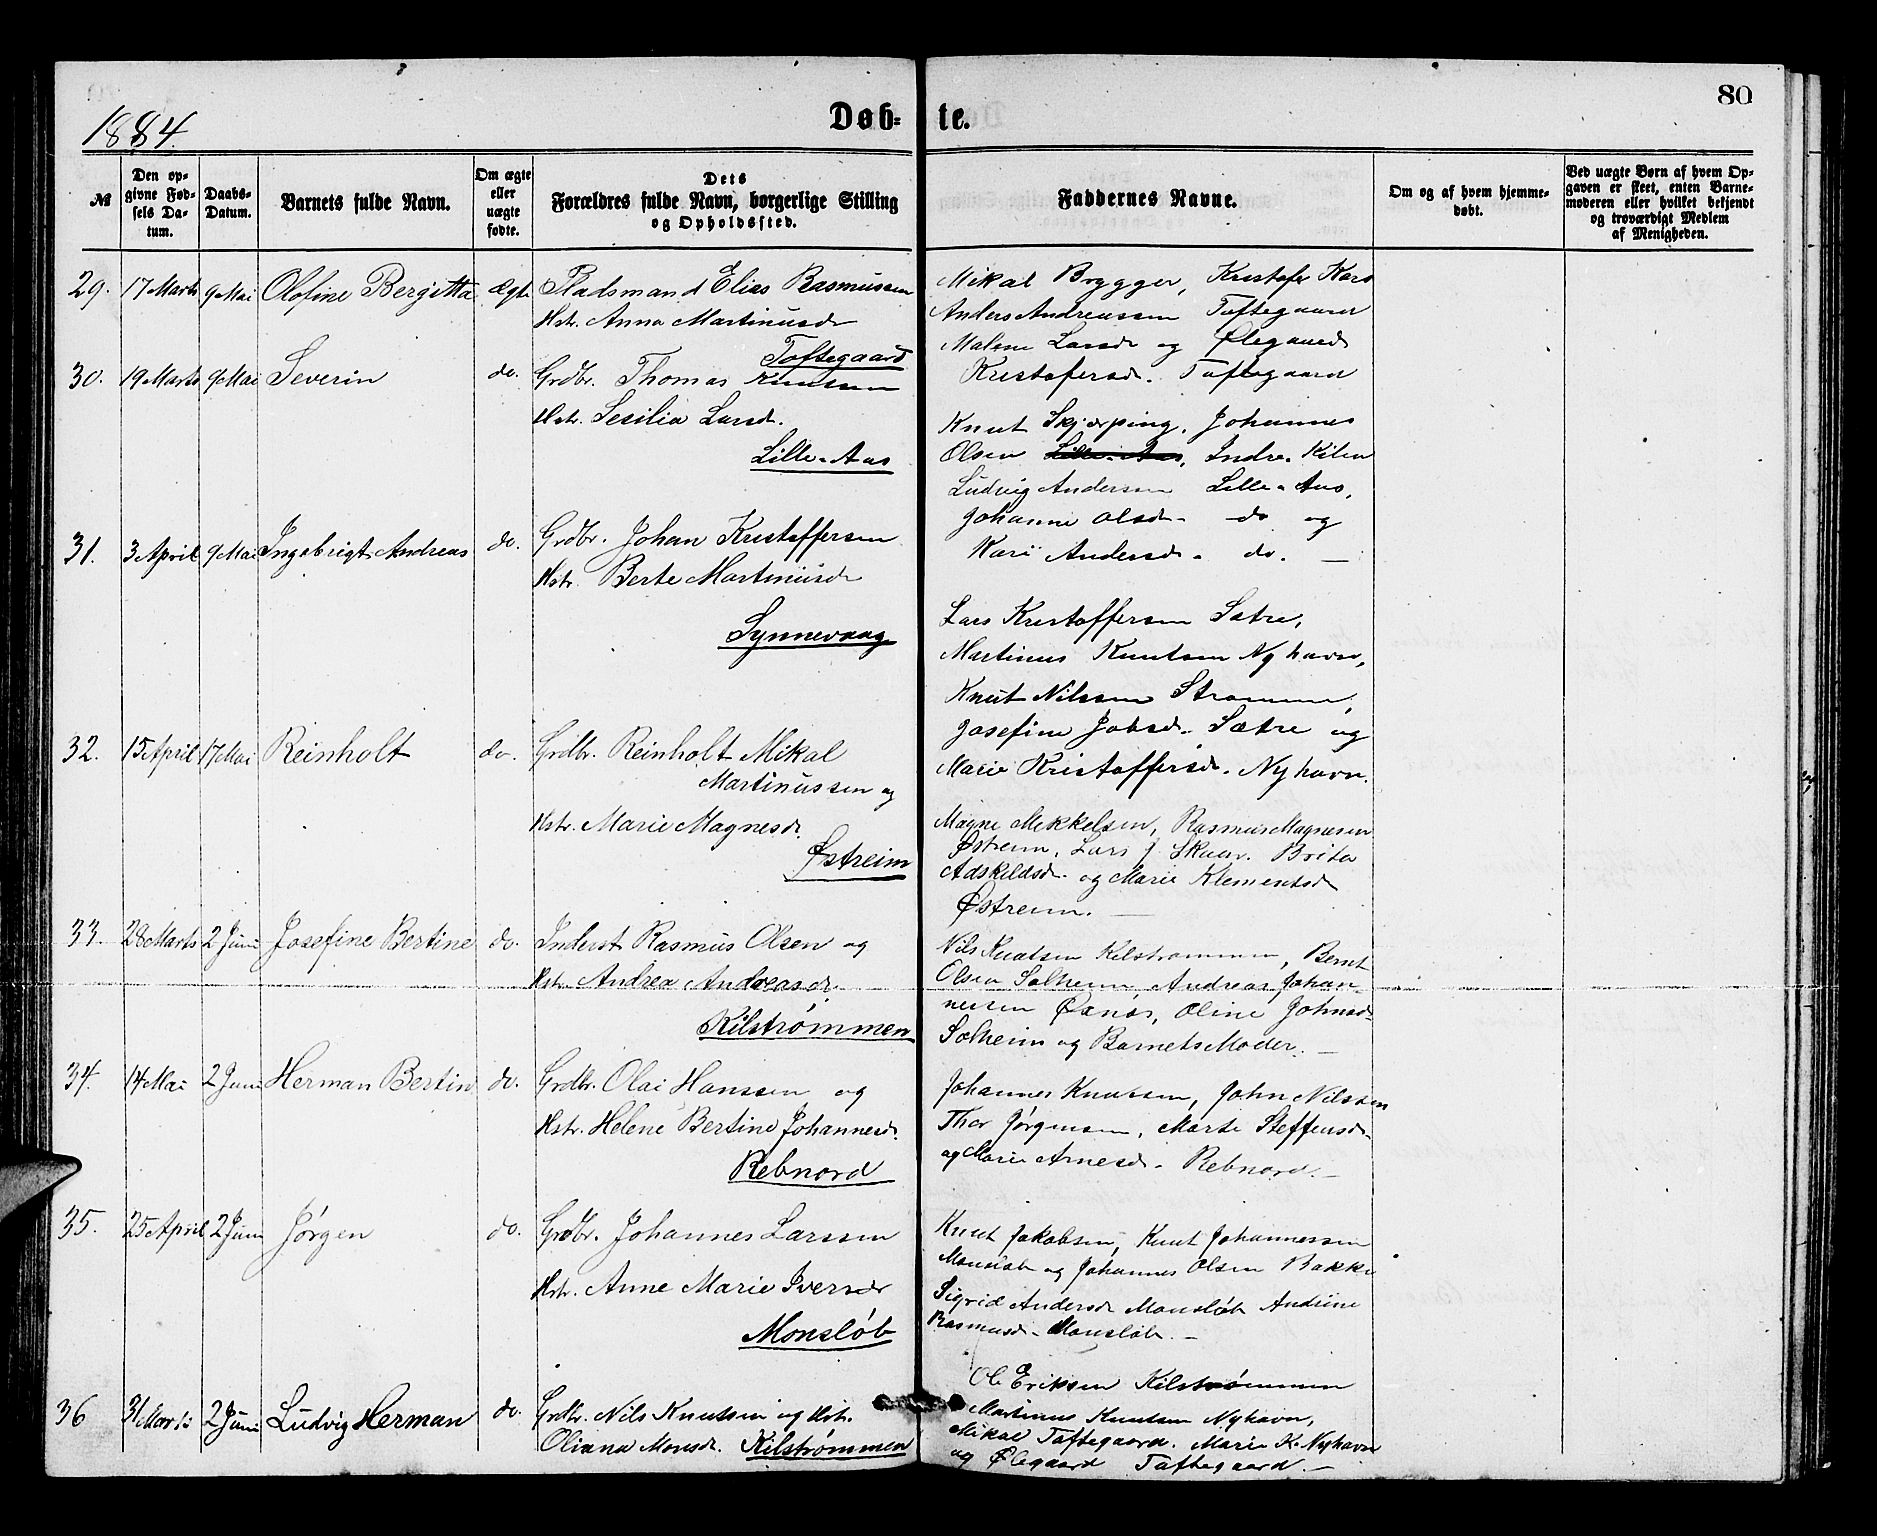 1884.
Døb-te.
80
№
Den opgivne Fødsels Datum.
Daabs-Datum.
Barnets fulde Navn.
Om ægte eller uægte fødte.
Dets Forældres fulde Navn, borgerlige Stilling og Opholdssted.
Faddernes Navne.
Om og af hvem hjemmedøbt.
Ved uægte Børn af hvem Opgaven er skeet, enten Barnemoderen eller hvilket bekjendt og troværdigt Medlem af Menigheden.
29. 17 Marts 9 Mai Olofine Bergitta ægte Pladsmand Elias Rasmussen
Hstr. Anna Martinusdr
Toftegaard
Mikal Brygger, Kristofer
Anders Andreassen Toftegaard
Malene Larsdr og Ølegaard
Kristofersdr. Toftegaard
30. 19 Marts 9 Mai Severin do. Grdbr. Thomas Knutsen
Hstr. Sesilia Larsdr.
Lille-Aas
Knut Skjerping, Johannes
Olsen Lille-Aas, Indre-Kilen
Ludvig Andersen Lille-Aas,
Johanne Olsdr. do og
Kari Andersdr. do. —
31. 3 April 9 Mai Ingebrigt Andreas do. Grdbr. Johan Kristoffersen
Hstr. Berte Martinusdr
Synnevaag
Lars Kristoffersen Sætre,
Martinus Knutsen Nyhavn,
Knut Nilssen Strømmen,
Josefine Jobsdr. Sætre og
Marie Kristoffersdr. Nyhavn.
32. 15 April 17 Mai Reinholt do. Grdbr. Reinholt Mikal
Martinussen og
Hstr. Marie Magnesdr.
Østreim
Magne Mikkelsen, Rasmus Magnesen
Østreim, Lars J. Skaar. Brita
Adskeldsdr. og Marie Klementsdr
Østreim. —
33. 28 Marts 2 Juni Josefine Bertine do. Inderst Rasmus Olsen og
Hstr. Andrea Andreasdr.
Kilstrømmen
Nils Knutsen Kilstrømmen, Bernt
Olsen Solheim, Andreas Johan-
nessen Øxnes, Oline Johnsdr.
Solheim og Barnets Moder. —
34. 14 Mai 2 Juni Herman Bertin do. Grdbr. Olai Hanssen og
Hstr. Helene Bertine Johannesdr.
Rebnord
Johannes Knutsen, John Nilssen
Thor Jørgensen, Marte Steffensdr.
og Marie Arnesdr. Rebnord. —
35. 25 April 2 Juni Jørgen do. Grdbr. Johannes Larssen
Hstr. Anne Marie Iversdr
Monsløb
Knut Jakobsen, Knut Johannessen
Monsløb og Johannes Olsen Bakke
Sigrid Andersdr Monsløb Andrine
Rasmusdr. Monsløb. —
36 31 Marts 2 Juni Ludvig Herman do. Grdbr. Nils Knutsen og Hstr.
Oliana Monsdr. Kilstrømmen
Ole Eriksen Kilstrømmen
Martinus Knutsen Nyhavn,
Mikal Toftegaard. Marie K. Nyhavn
og Ølegaard Toftegaard. —